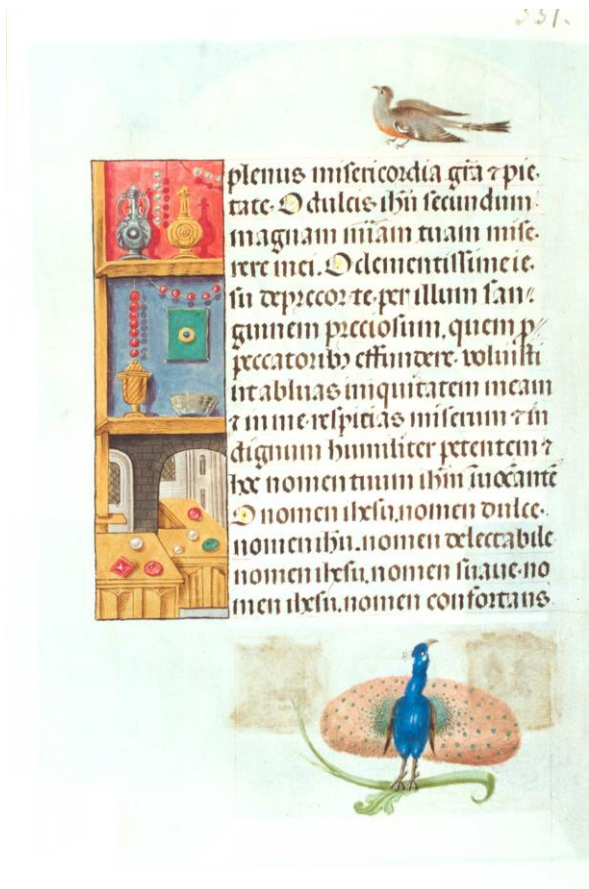 331.
plenus misericordia gr̄a ⁊ pie-
tate. O dulcis ihū secundum
magnam m̄iam tuam mise-
rere mei. O clementissime ie-
su deprecor te per illum san-
guinem preciosum, quem p̱
peccatoribꝰ effundere voluisti
ut abluas iniquitatem meam
⁊ in me respicias miserum ⁊ in
dignum humiliter petentem ⁊
hoc nomen tuum ihm̄ īuocantē
O nomen ihesu, nomen dulce.
nomen ihū. nomen delectabile
nomen ihesu, nomen suaue. no
men ihesu, nomen confortans